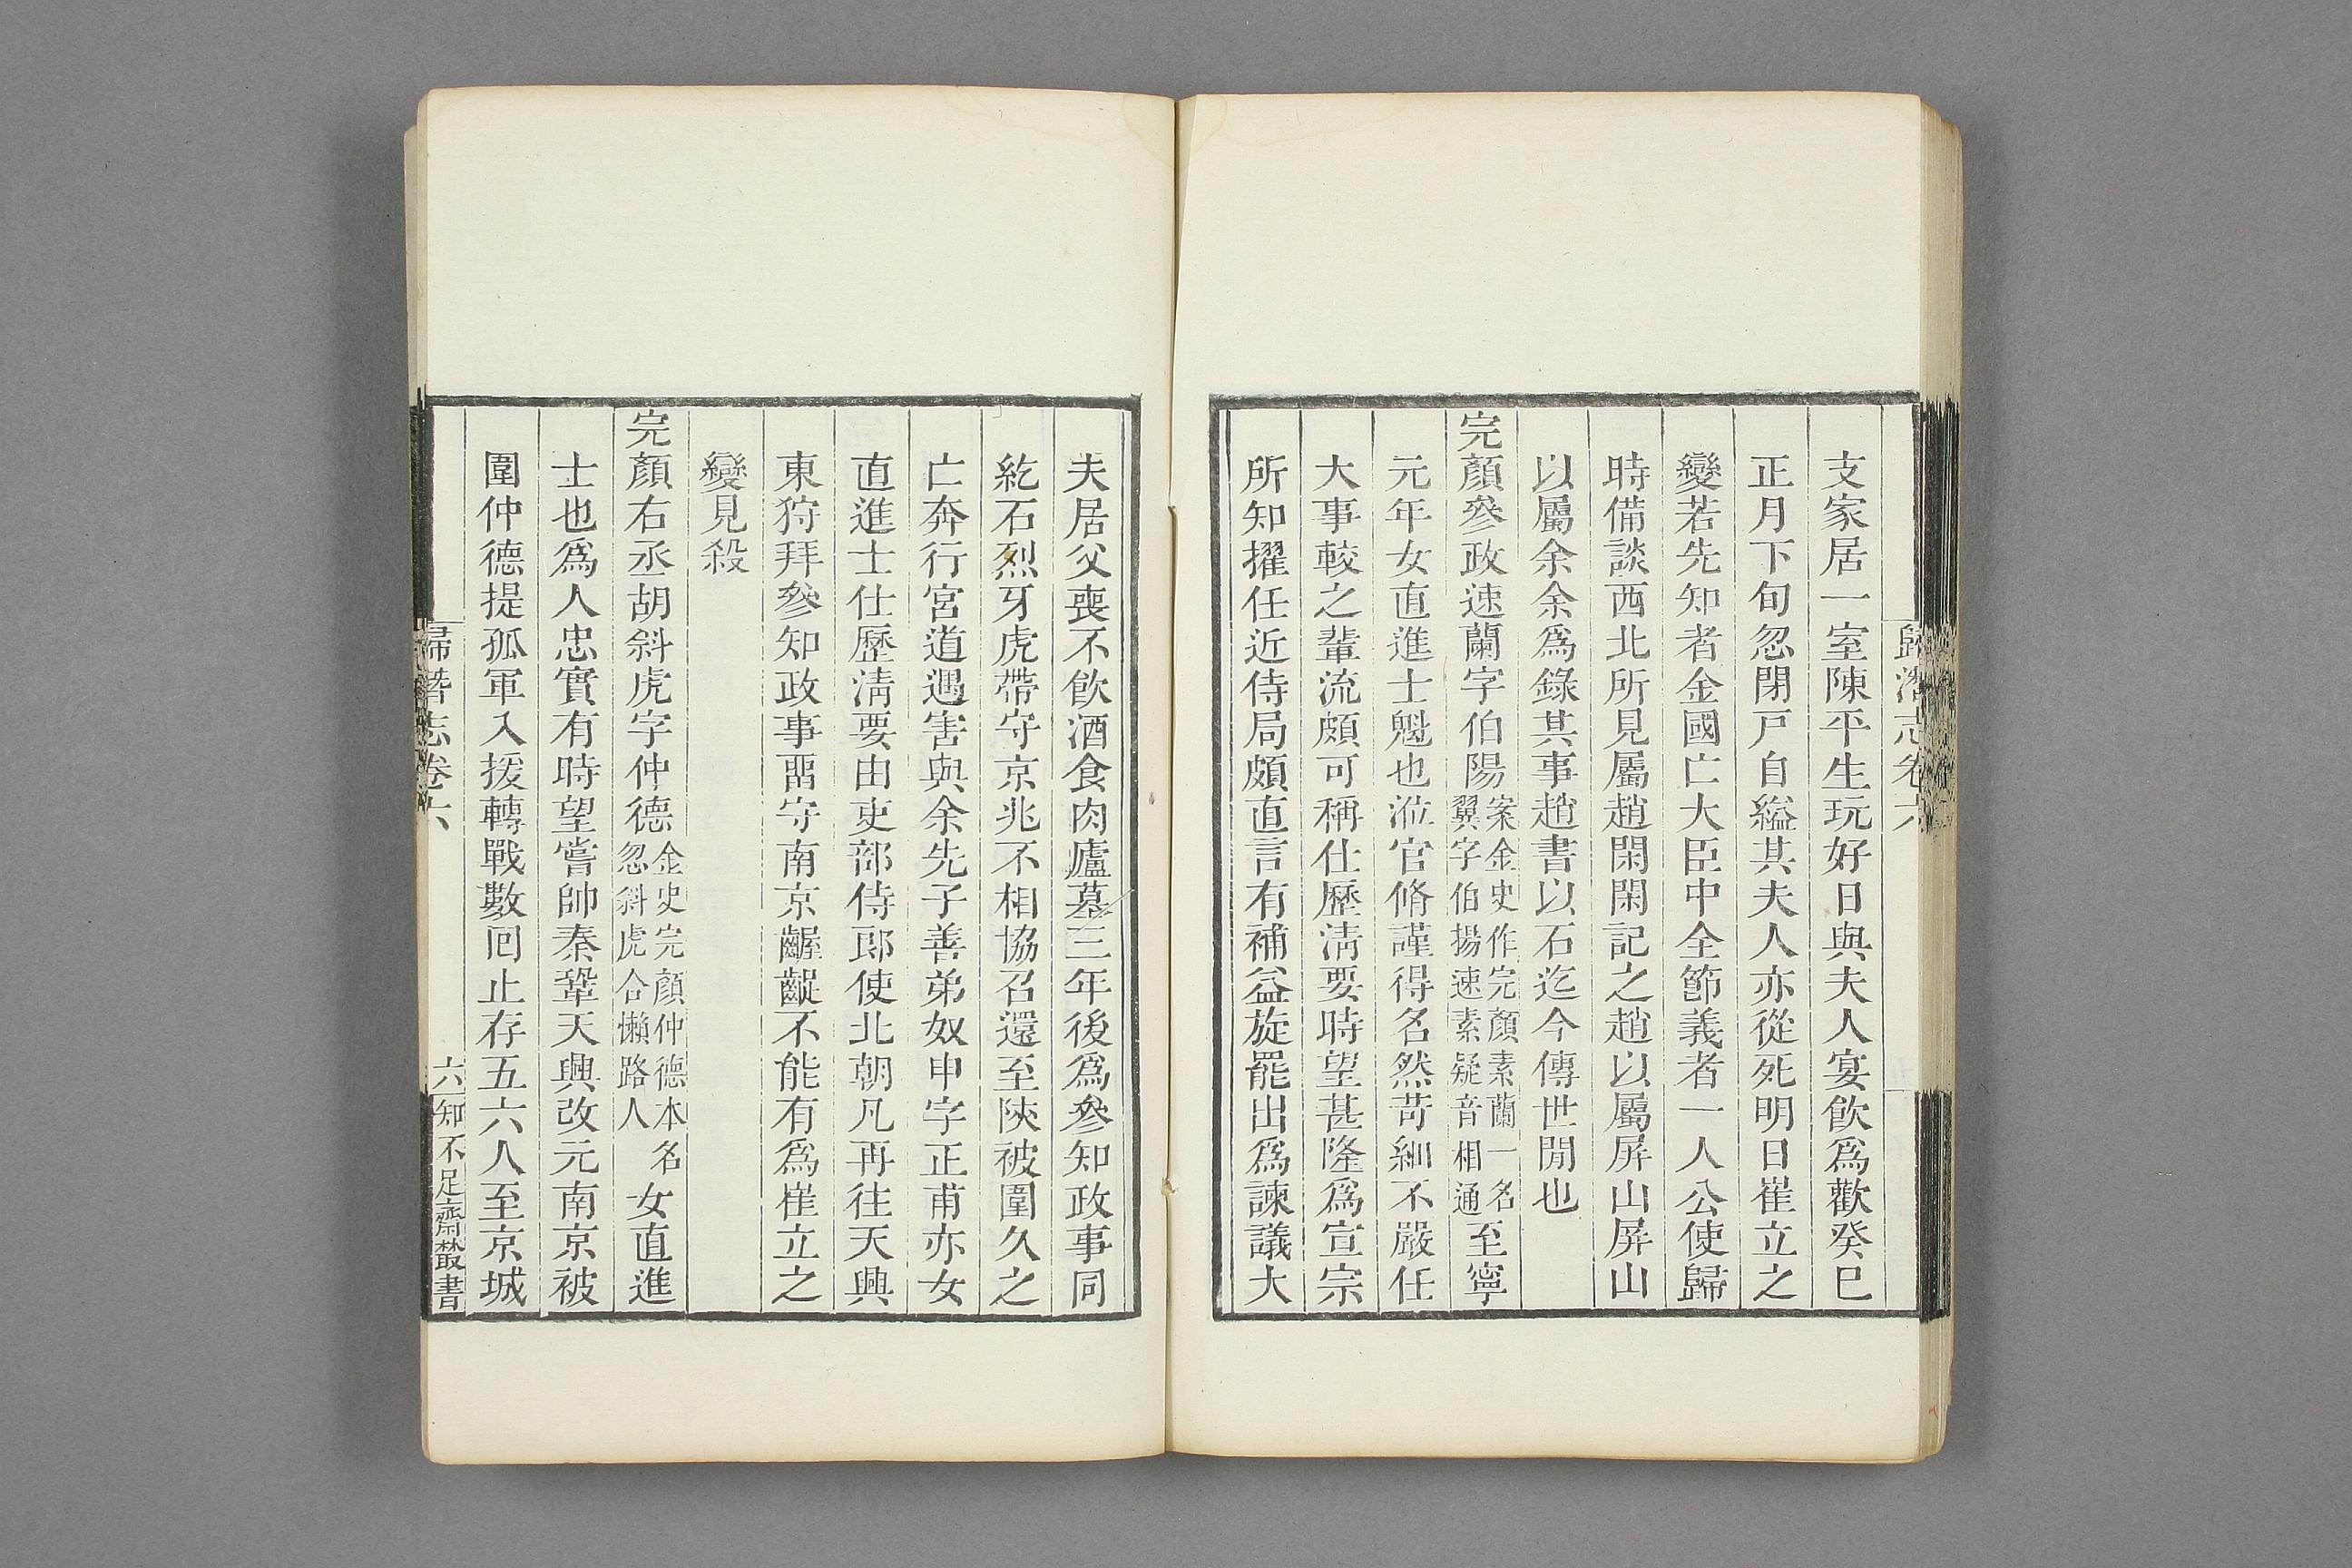 歸潛志卷六
支家居一室陳平生玩好日與夫人宴飮爲歡癸巳
正月下旬忽閉戸自縊其夫人亦從死明日崔立之
變若先知者金國亡大臣中全節義者一人公使歸
時備談西北所見屬趙閑閑記之趙以屬屏山屏山
以屬余余爲錄其事趙書以石迄今傳世閒也
完顏參政速蘭字伯陽案金史作完顏素蘭一名翼字伯揚速素疑音相通至寧
元年女直進士魁也涖官脩謹得名然苛細不嚴任
大事較之輩流頗可稱仕歷淸要時望甚隆爲宣宗
所知擢任近侍局頗直言有補益旋罷出爲諫議大
夫居父喪不飮酒食肉廬墓三年後爲參知政事同
紇石烈牙虎帶守京兆不相協召還至陝被圍久之
亡奔行宮道遇害與余先子善弟奴申字正甫亦女
直進士仕歷淸要由吏部侍郎使北朝凡再往天興
東狩拜參知政事畱守南京齷齪不能有爲崔立之
變見殺
完顏右丞胡斜虎字仲德金史完顏仲德本名忽斜虎合懶路人女直進
士也爲人忠實有時望嘗帥秦鞏天興改元南京被
圍仲德提孤軍入援轉戰數回止存五六人至京城
歸潛志卷六
六
知不足齋叢書